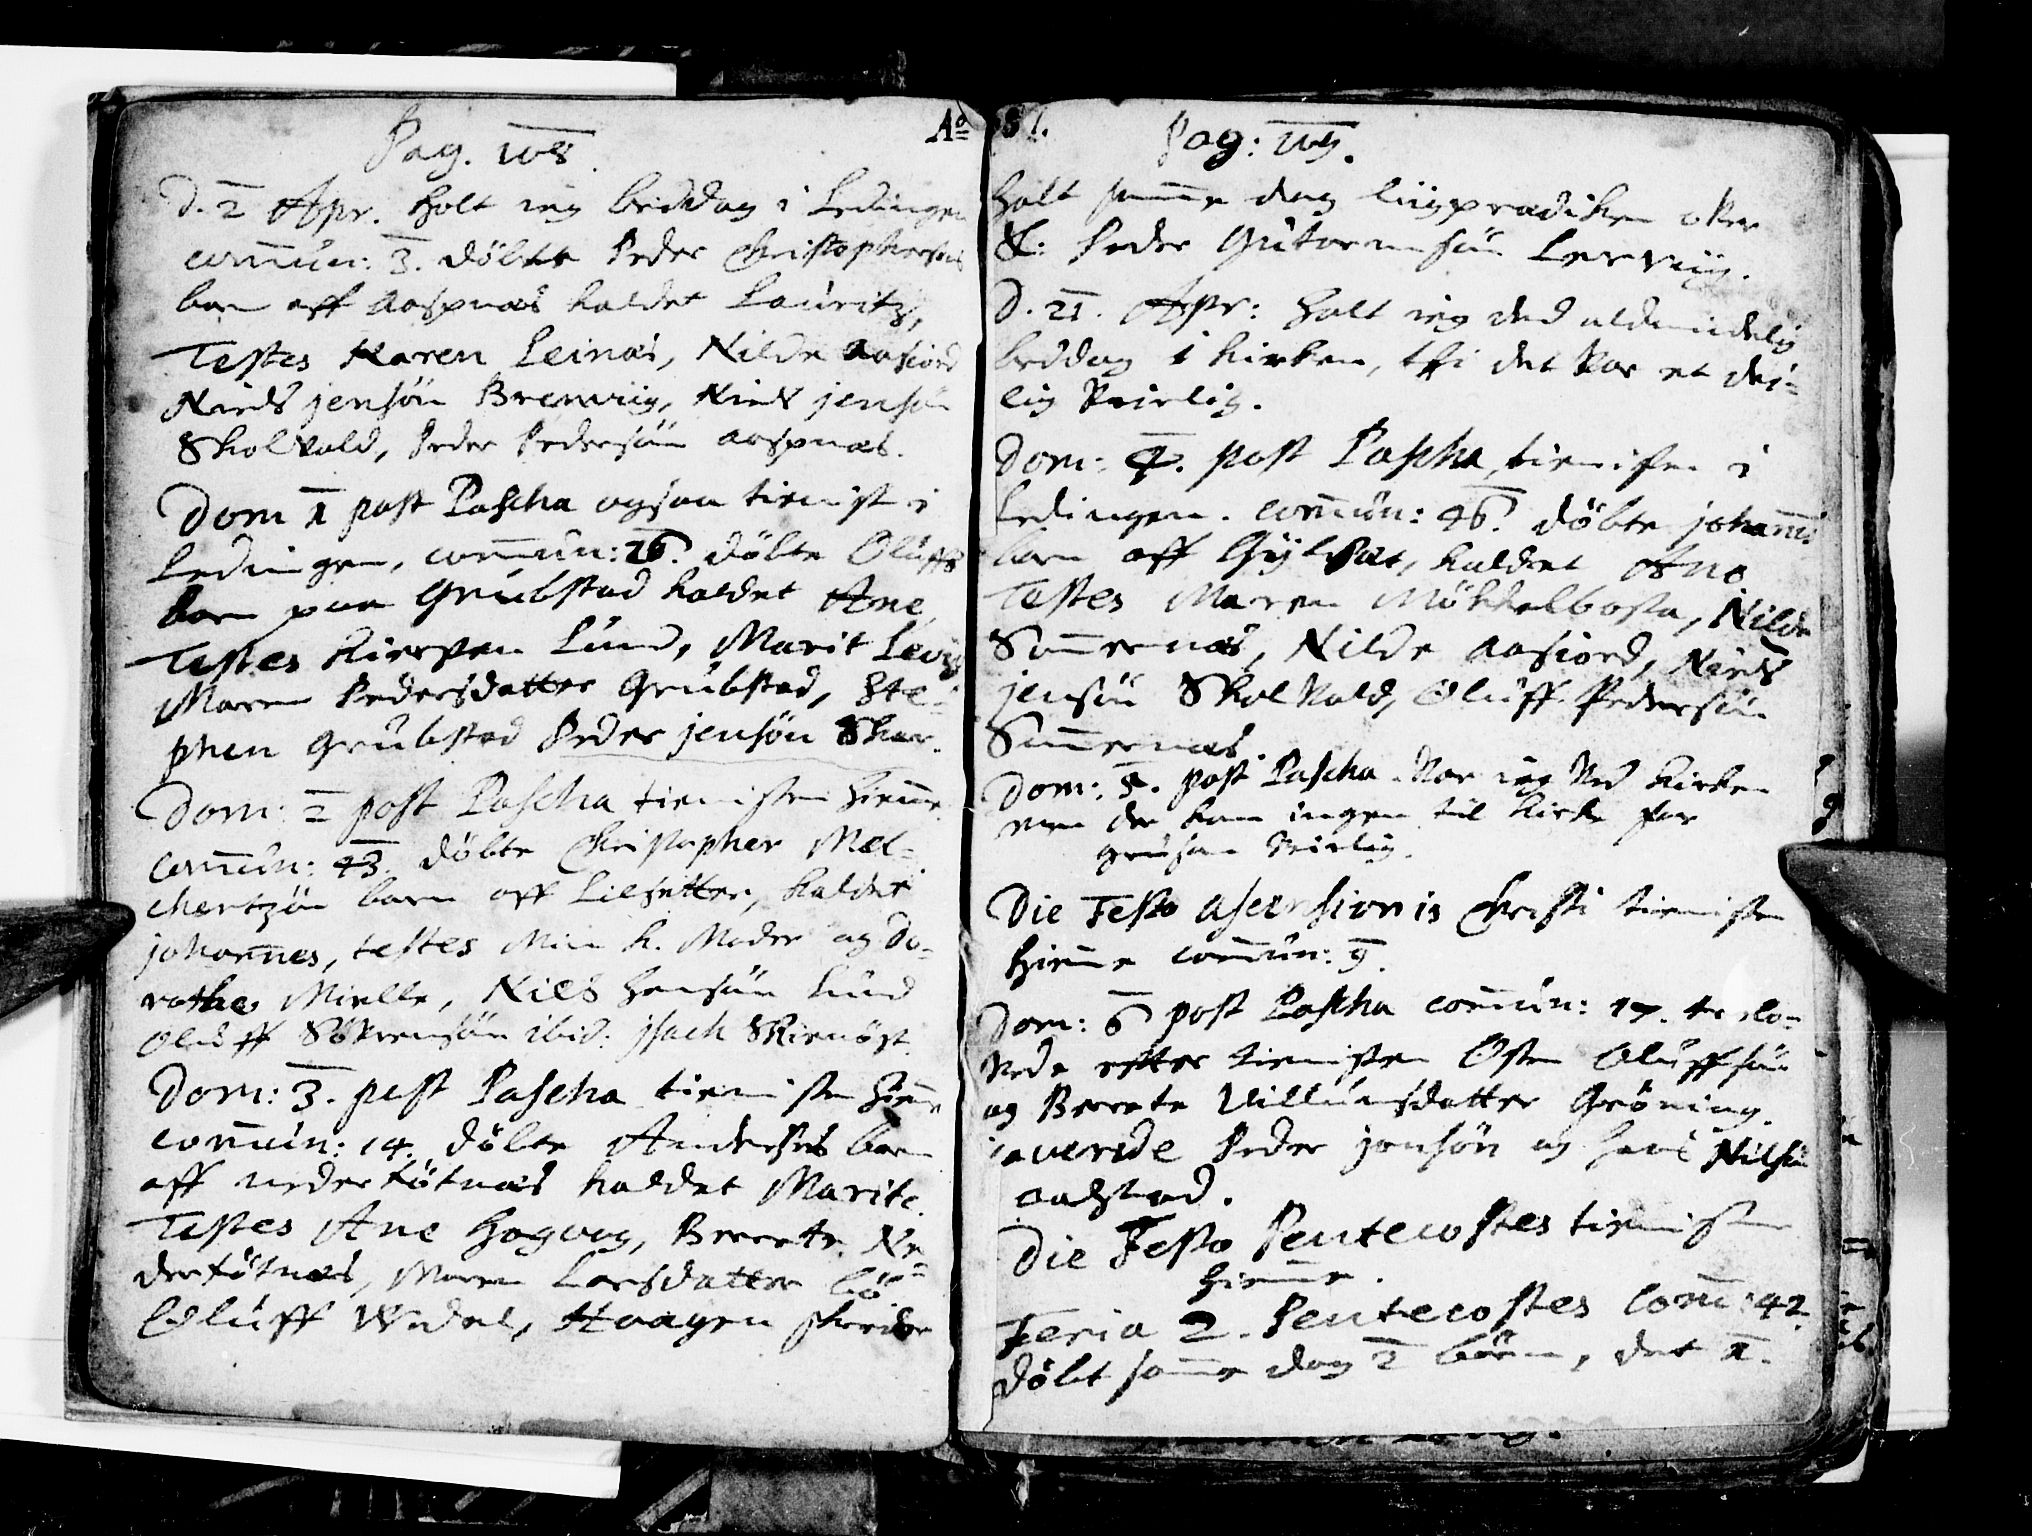 Pag. 108.
D. 2 Apr. holt ieg beddag i Ledingen
commun: 3. döbte Peder Christophersens
barn aff Aaspnæs kaldet Lauritz,
Testes Karen Leinæs, Nilde Aafiord
Niels jensön Brenviig, Niels jensön
Skolvold, Peder Pedersön Aaspnæs.
Dom 1 post Pascha ogsaa tienist i
Ledingen, commun: 26. döbte Oluffs
barn paa Grubstad kaldet Ane
Testes Kiersten Lund, Marit
Maren Pedersdatter Grubstad, Ste-
phen Grubstad Peder jensön Skar.
Dom: 2 post Pascha tienisten hieme
commun: 43. döbte Christopher Mel-
chertzön barn aff Lilsetter, kaldet
johannes, testes Min k. Moder og Do-
rathe Mielle, Niels hansön Lund
Oluff Sörrensön ibid. jsach
Dom: 3. post Pascha tienisten hieme
commun: 14. döbte Andersis barn
aff neder kötnæs kaldet Marite.
Testes Ane Hogvog, Berrete Ne-
derkötnæs, Maren Larsdatter bö-
Oluff Widel, Haagen
A° 87.
Pag: 109.
holt samme dag liigprædiken over
S: Peder Gutormsön Lerviig.
D. 21. Apr: holt ieg ded aldmindelig
beddag i kirken, thi det var et dei-
lig veirlig.
Dom: 4. post Pascha, tienisten i
Ledingen. commun: 46. döbte johannis
barn aff Gylvæt, kaldet
Testes Maren Mökkelbosta, Nilde
Sannernæs, Nilde Aafiord, Niels
jensön Skolvold, Oluff Pedersön
Sannernæs.
Dom: 5. post Pascha var ieg ved kirken
men der kom ingen til kirke for
grusom veirlig.
Die Festo Ascensionis Christi tienisten
hieme commun: 9.
Dom: 6 post Pascha commun: 17. trolo-
vede efter tienisten Osten Oluffsön
og Berrete Villumsdatter Gröning.
caverede Peder jonsön og hans Nilsön
Die Festo Pentecostes tienisten
hieme.
Feria 2. Pentecostes Comm: 42.
döbt samme dag 2 börn, det 1.